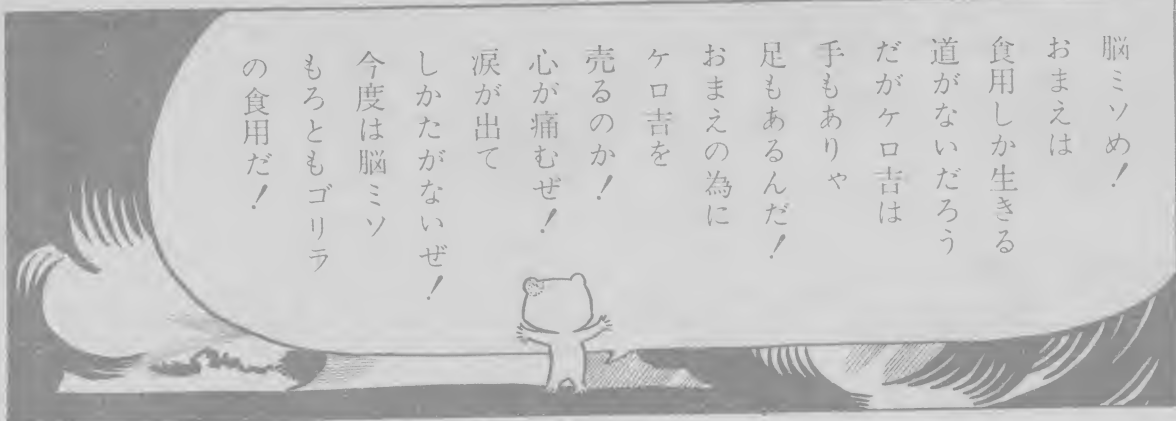 脳ミソめ！
おまえは
食用しか生きる
道がないだろう
だがケロ吉は
手もありゃ
足もあるんだ！
おまえの為に
ケロ吉を
売るのか！
心が痛むぜ！
涙が出て
しかたがないぜ！
今度は脳ミソ
もろともゴリラ
の食用だ！